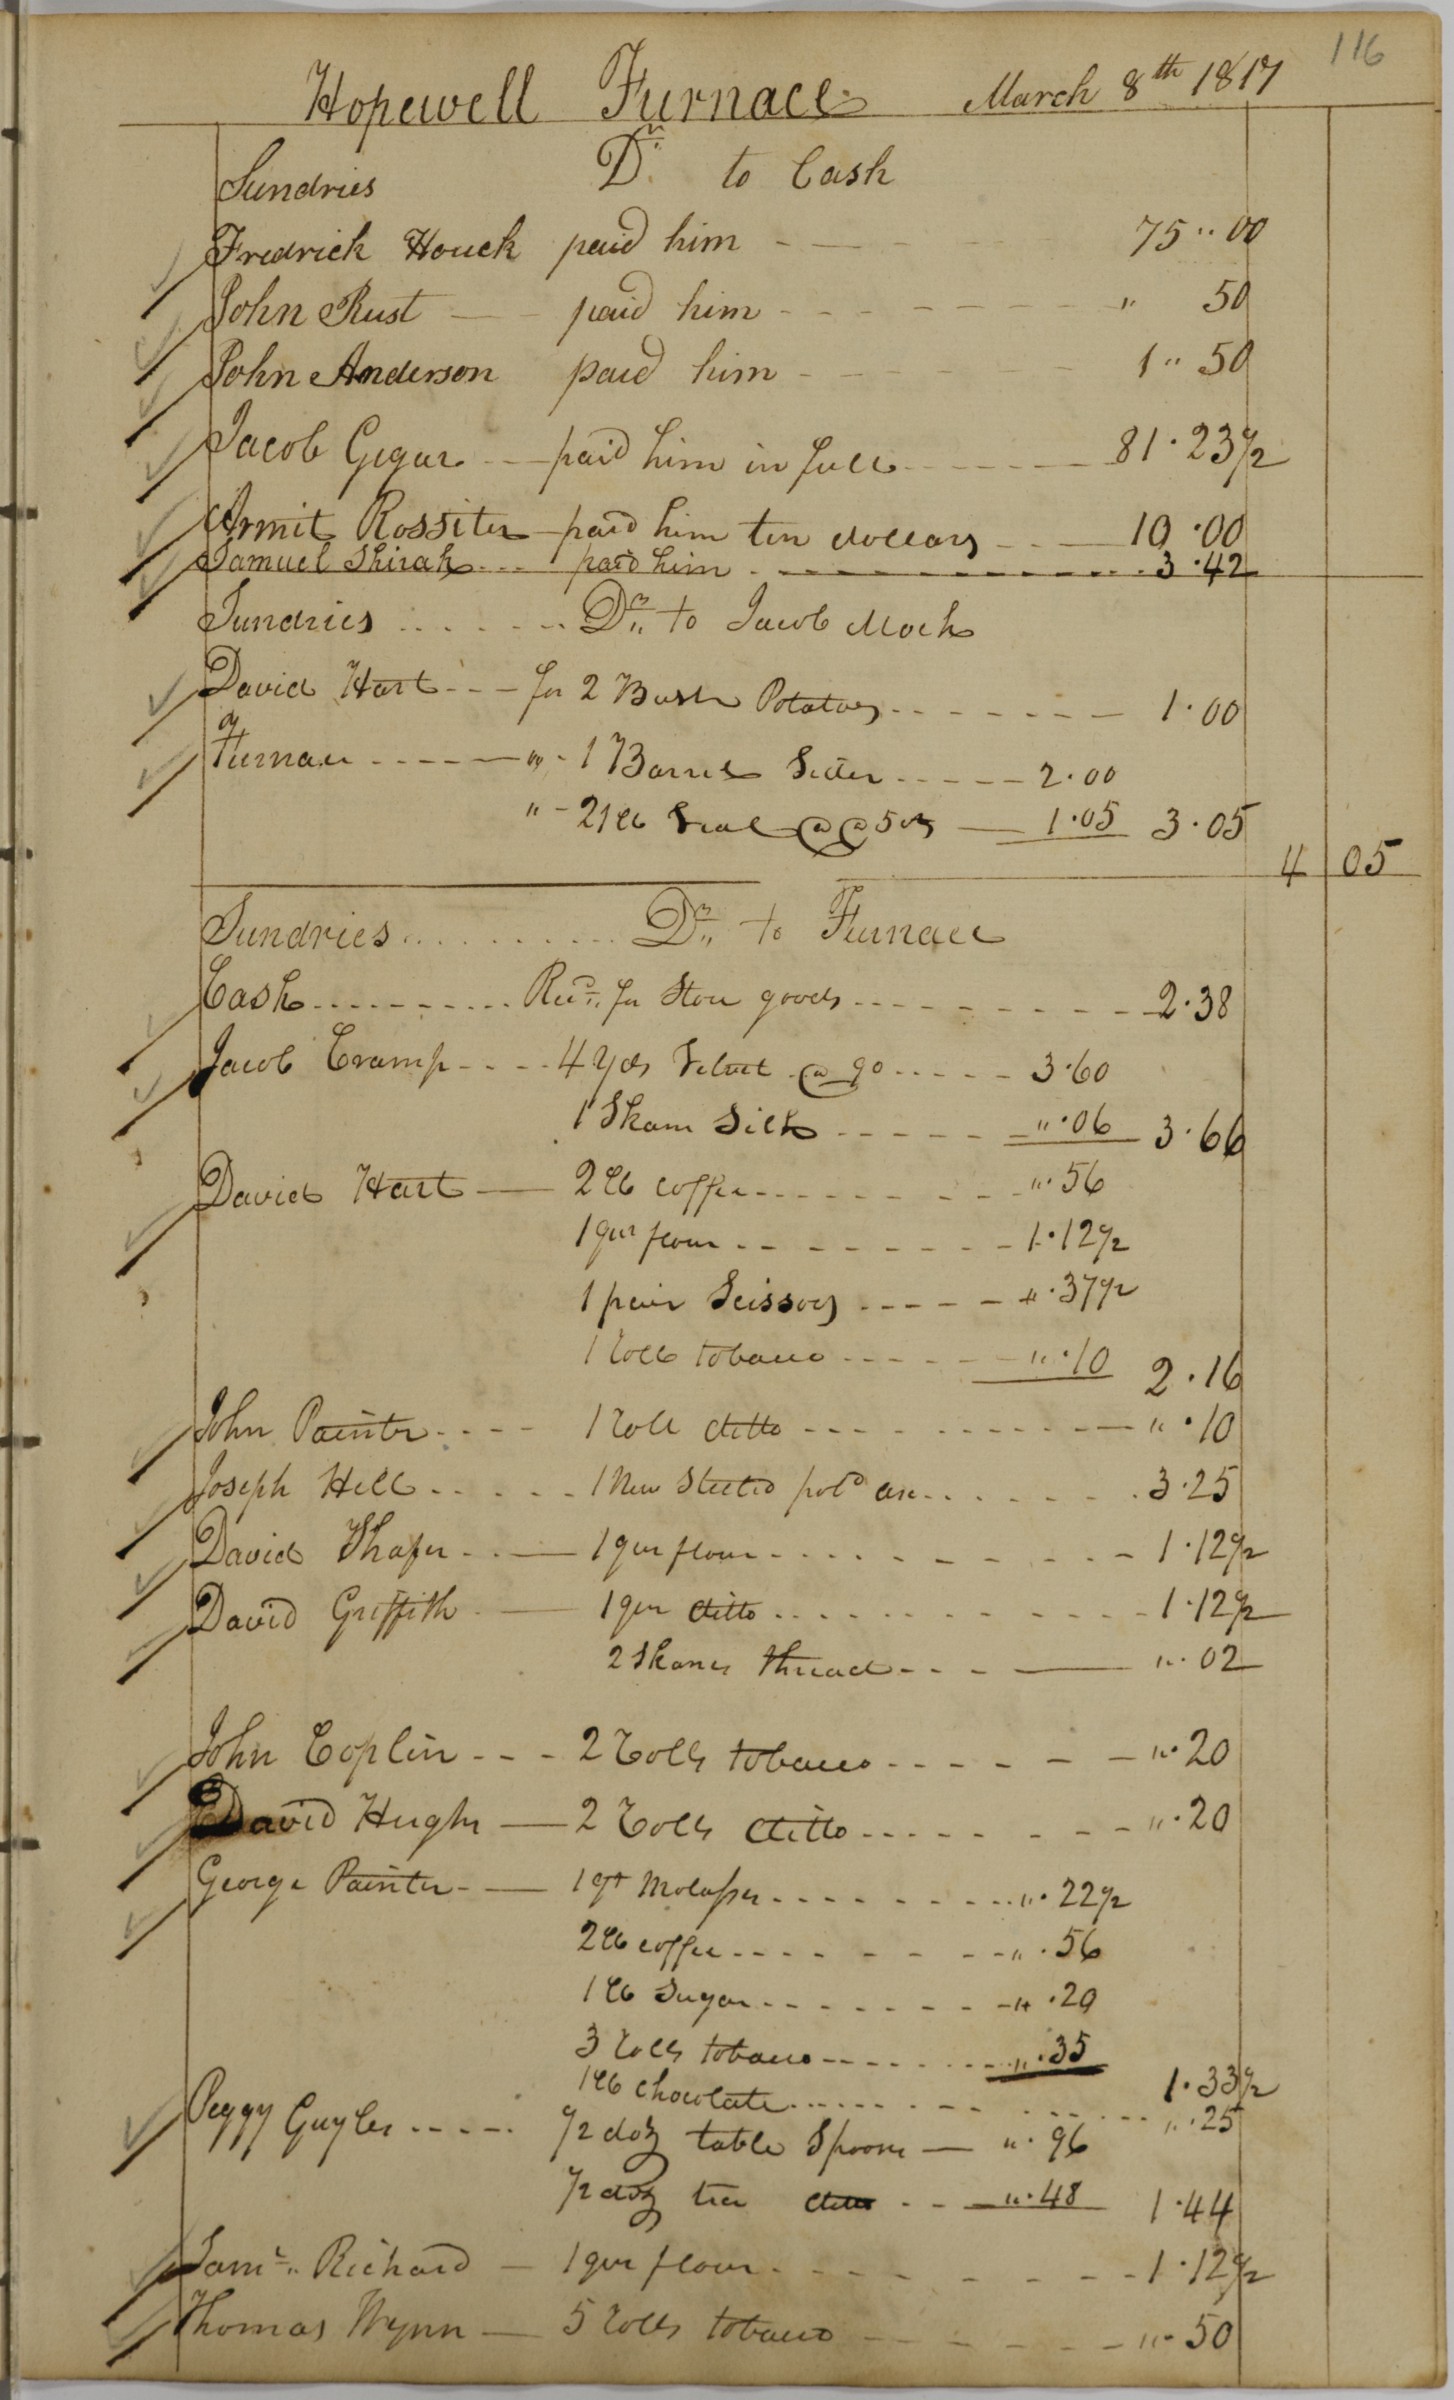 116
Hopewell Furnace March 8th 1817
Sundries Dr. to Cash
Fredrick Houck paid him 75 " 00
John Rust paid him " 50
John Anderson paid him 1 " 50
Jacob Gegar paid him in full 81.23 1/2
Armit Rossiter paid him ten dollars 10.00
Samuel Shirak paid him 3.42
Sundries Dr. to Jacob Mock
David Hart for 2 Bush Potatoes 1.00
Furnace " 1 Barrel 2.00
" 21 lb Veal @ @ 5 cts 1.05 3.05
4 05
Sundries Dr. to Furnace
Cash Recd. for Store goods 2.38
Jacob Cramp 4 Yds Velvet @ 90 3.60
1 Skain Silk ".06 3.66
David Hart 2 lb coffee ".56
1 qur flour 1.12 1/2
1 pair Scissors ".37 1/2
1 roll tobacco ".10 2.16
John Painter 1 roll ditto ".10
Joseph Hill 1 New Steeled axe 3.25
David Shafer 1 qur flour 1.12 1/2
David Griffith 1 qur ditto 1.12 1/2
2 Skanes thread ".02
John Coplin 2 rolls tobacco ".20
David Hughs 2 rolls ditto ".20
George Painter 1 qt Molasses ".22 1/2
2 lb coffee ".56
1 lb Sugar ".20
3 rolls tobacco ".35
1.33 1/2
1 lb Chocolate ".25
Peggy Guyler 1/2 doz table Spoons ".96
1/2 doz tea ditto ".48 1.44
Saml. Richard 1 qur flour 1.12 1/2
Thomas Wynn 5 rolls tobacco ".50